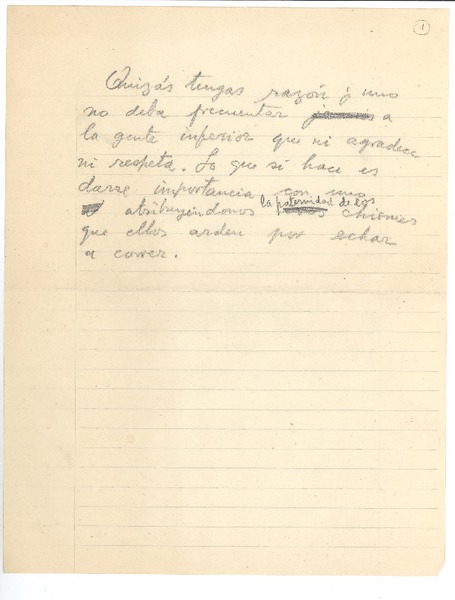 1
Quizás tengas razón y uno
no deba frecuentar jamás a
la gente inferior que ni agradece
ni respeta. Lo que si hace es
darse importancia con uno
atribuyéndonos la paternidad de los chismes
que ellos arden por echar
a correr.